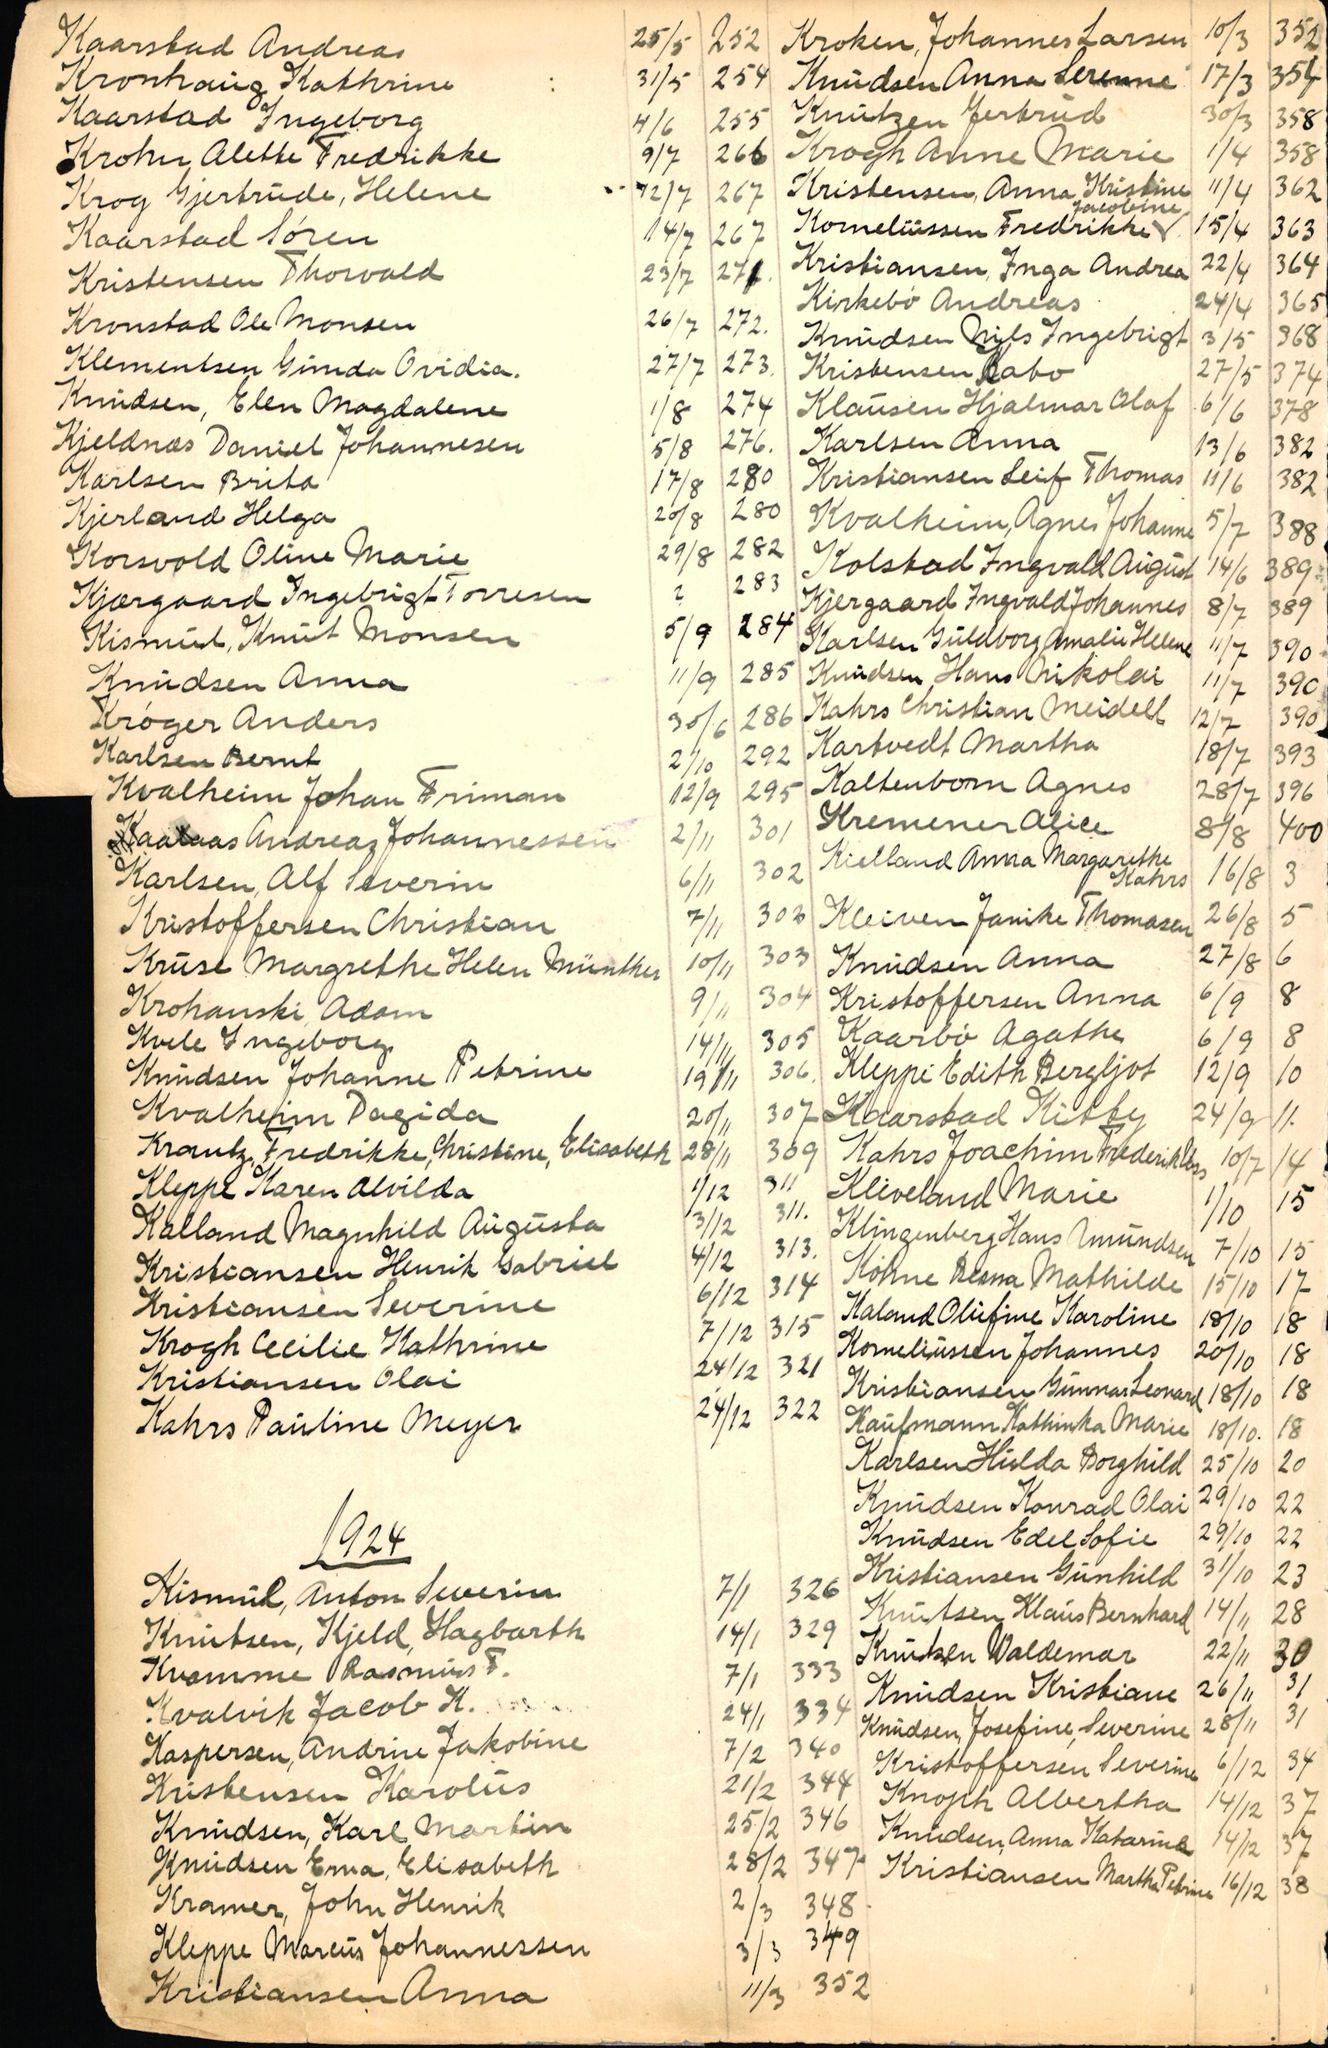 Kaarstad Andreas 25/5 252
Kronhaug Kathrine 31/5 254
Kaarstad Ingeborg 4/6 255
Krohn Alette Fredrikke 9/7 266
Krog Gjertrude, Helene 12/7 267
Kaarstad Sören 14/7 267
Kristensen Thorvald 23/7 271.
Kronstad Ole Monsen 26/7 272.
Klementsen Gunda Ovidia. 27/7 273.
Knudsen, Elen Magdalene 1/8 274
Kjeldnæs Daniel Johannesen 5/8 276.
Karlsen Brita 17/8 280
Kjerland Helga 20/8 280
Korsvold Oline Marie 29/8 282
Kjærgaard Ingebrigt Torresen ? 283
Kismul, Knut Monsen 5/9 284
Knudsen Anna 11/9 285
Kröger Anders 30/6 286
Karlsen Bernt 2/10 292
Kvalheim Johan Friman 12/9 295
Andreas Johannessen 2/11 301
Karlsen, Alf Severin 6/11 302
Kristoffersen Christian 7/11 302
Kruse Margrethe Helen Münther 10/11 303
Krohanski Adam 9/11 304
Kvele Ingeborg 14/11 305
Knudsen Johanne Petrine 19/11 306.
Kvalheim Dagida 20/11 307
Krantz, Fredrikke, Christine, Elisabeth 28/11 309
Kleppe Karen Alvilda 1/12 311
Kalland Magnhild Augusta 3/12 311.
Kristiansen Henrik Gabriel 4/12 313.
Kristiansen Severine 6/12 314
Krogh Cecilie Kathrine 7/12 315
Kristiansen Olai 24/12 321
Kahrs Pauline Meyer 24/12 322
1924
Kismul, Anton Severin 7/1 326
Knutsen, Kjeld, Hagbarth 14/1 329
Kvamme Rasmus F. 7/1 333
Kvalvik Jacob K. 24/1 334
Kaspersen, Andrine Jakobine 7/2 340
Kristensen Karolus 21/2 344
Knudsen, Karl Martin 25/2 346
Knudsen Erna, Elisabeth 28/2 347
Kramer, John Henrik 2/3 348
Kleppe Marcus Johannessen 3/3 349
Kristiansen Anna 11/3 352
Kroken, Johannes Larsen 10/3 352
Knudsen Anna Serenne 17/3 354
Knutzen Jertrud 30/3 358
Krogh Anne Marie 1/4 358
Kristensen, Anna Kristine 11/4 362
Jacobine
Korneliussen Fredrikke 15/4 363
Kristiansen, Inga Andrea 22/4 364
Kirkebö Andreas 24/4 365
Knudsen Nils Ingebrigt 3/5 368
Kristensen Rabo 27/5 374
Klausen Hjalmar Olaf 6/6 378
Karlsen Anna 13/6 382
Kristiansen Leif Thomas 11/6 382
Kvalheim, Agnes Johanne 5/7 388
Kolstad Ingvald August 14/6 389
Kjergaard Ingvald Johannes 8/7 389
Karlsen Guldborg Amalie Helene 11/7 390
Knudsen Hans Nikolai 11/7 390
Kahrs Christian Meidell 12/7 390
Kartvedt Martha 18/7 393
Kaltenborn Agnes 28/7 396
Kremener Alice 8/8 400
Kielland Anna Margarethe
Kahrs 16/8 3
Kleiven Janike Thomasen 26/8 5
Knudsen Anna 27/8 6
Kristoffersen Anna 6/9 8
Kaarbö Agathe 6/9 8
Kleppe Edith Bergljot 12/9 10
Kaarstad Kitty 24/9 11.
Kahrs Joachim Frederik 10/7 14
Kleveland Marie 1/10 15
Klingenberg Hans Amundsen 7/10 15
Köhne Mathilde 15/10 17
Kaland Olufine Karoline 18/10 18
Korneliussen Johannes 20/10 18
Kristiansen Gunnar Leonard 18/10 18
Kaufmann Kathinka Marie 18/10. 18
Karlsen Hulda Borghild 25/10 20
Knudsen Konrad Olai 29/10 22
Knudsen Edel Sofie 29/10 22
Kristiansen Gunhild 31/10 23
Knutsen Klaus Bernhard 14/11 28
Knutzen Waldemar 22/11 30
Knudsen Kristiane 26/11 31
Knudsen, Josefine, Severine 28/11 31
Kristoffersen Severine 6/12 34
Albertha 14/12 37
Knudsen, Anna Katarina 14/12 37
Kristiansen Martha Petrine 16/12 38